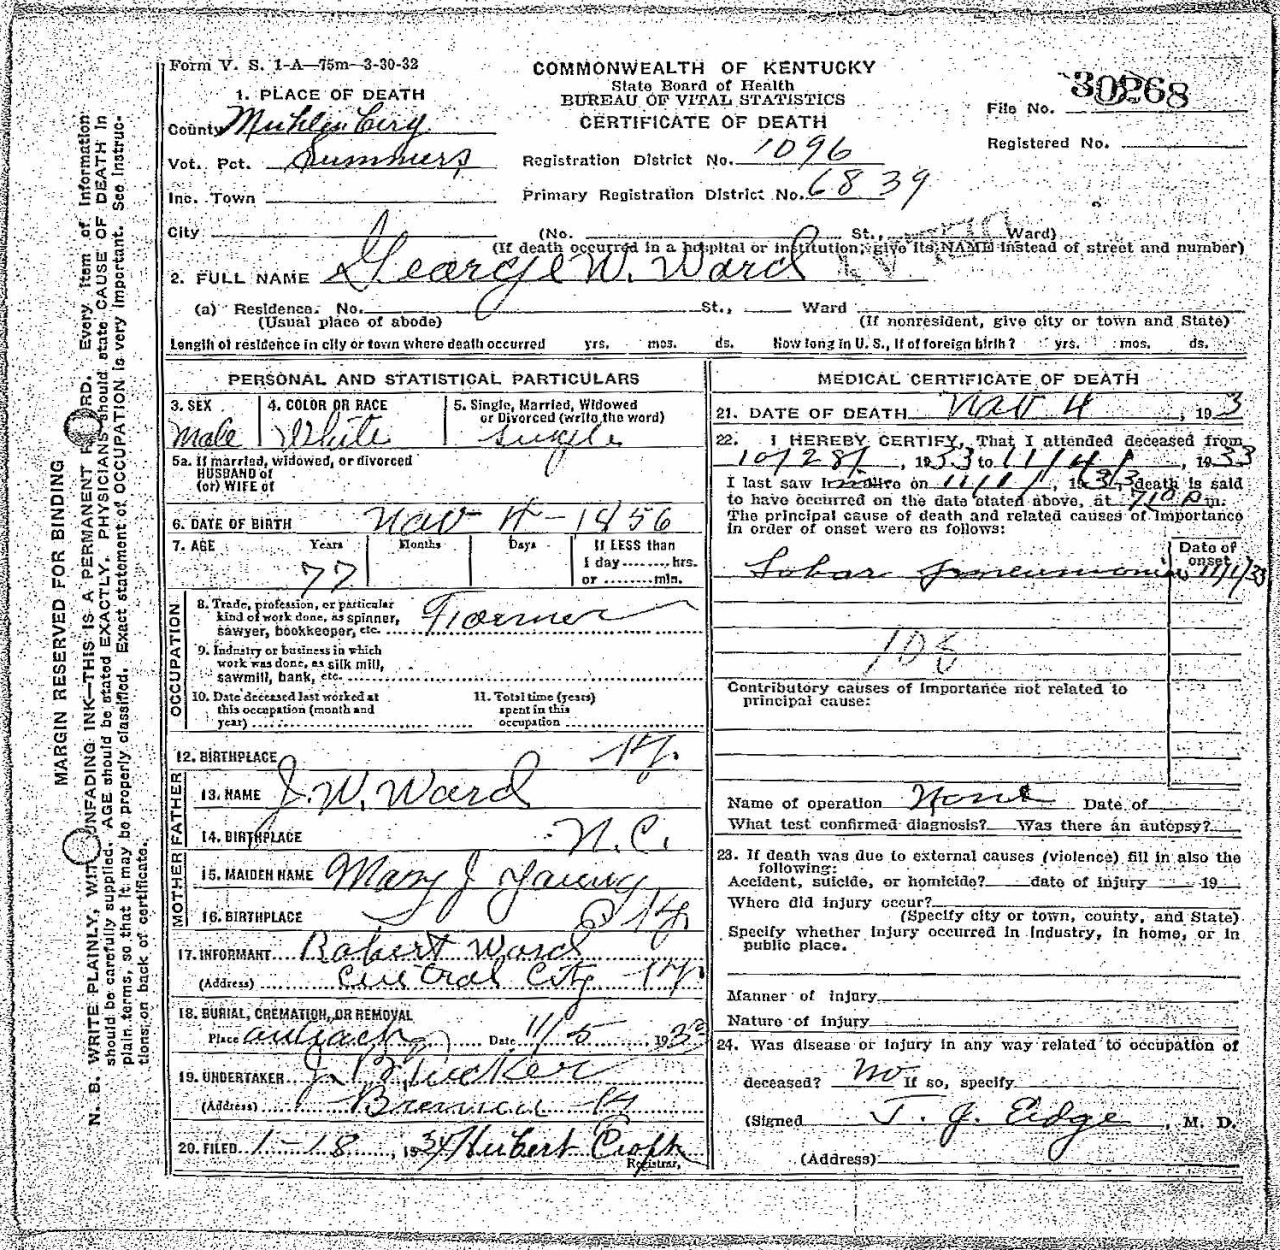 Form V. S. 1-A—75m—3-30-32
COMMONWEALTH OF KENTUCKY
State Board of Health
BUREAU OF VITAL STATISTICS
CERTIFICATE OF DEATH
File No. 30268
Registered No.
1. PLACE OF DEATH
County Muhlenberg
Vot. Pct. Summers
Inc. Town
City
Registration District No. 1096
Primary Registration District No. 6839
(No. St., Ward)
(If death occurred in a hospital or institution, give its NAME instead of street and number)
2. FULL NAME George W. Ward
(a) Residence. No. St., Ward
(Usual place of abode) (If nonresident, give city or town and State)
Length of residence in city or town where death occurred yrs. mos. ds. How long in U. S., if of foreign birth? yrs. mos. ds.
PERSONAL AND STATISTICAL PARTICULARS
3. SEX 4. COLOR OR RACE 5. Single, Married, Widowed
or Divorced (write the word)
Male White Single
5a. If married, widowed, or divorced
HUSBAND of
(or) WIFE of
6. DATE OF BIRTH Nov 4 - 1856
7. AGE Years Months Days If LESS than
1 day........hrs.
or ........min.
77
OCCUPATION
8. Trade, profession, or particular
kind of work done, as spinner,
sawyer, bookkeeper, etc. Farmer
9. Industry or business in which
work was done, as silk mill,
sawmill, bank, etc.
10. Date deceased last worked at
this occupation (month and
year)
11. Total time (years)
spent in this
occupation
12. BIRTHPLACE Ky.
FATHER
13. NAME J. W. Ward
14. BIRTHPLACE N. C.
MOTHER
15. MAIDEN NAME Mary J Young
16. BIRTHPLACE Ky
17. INFORMANT Robert Ward
(Address) Central City Ky
18. BURIAL, CREMATION, OR REMOVAL
Place Antioch Date 11/5 1933
19. UNDERTAKER J. B. Tucker
(Address) Bremen Ky
20. FILED 1-18, 1934 Hubert Croft
Registrar.
MEDICAL CERTIFICATE OF DEATH
21. DATE OF DEATH Nov 4, 1933
22. I HEREBY CERTIFY, That I attended deceased from
10/28/, 1933 to 11/4/, 1933
I last saw h alive on 11/1/, 1933, death is said
to have occurred on the date stated above, at 710 P m.
The principal cause of death and related causes of importance
in order of onset were as follows:
Date of
onset
Lobar pneumonia 11/1/33
108
Contributory causes of importance not related to
principal cause:
Name of operation None Date of
What test confirmed diagnosis? Was there an autopsy?
23. If death was due to external causes (violence) fill in also the
following:
Accident, suicide, or homicide? date of injury 19
Where did injury occur?
(Specify city or town, county, and State)
Specify whether injury occurred in industry, in home, or in
public place.
Manner of injury
Nature of injury
24. Was disease or injury in any way related to occupation of
deceased? No If so, specify
(Signed T. J. Edge, M. D.
(Address)
MARGIN RESERVED FOR BINDING
N. B. WRITE PLAINLY, WITH UNFADING INK—THIS IS A PERMANENT RECORD. Every item of information
should be carefully supplied. AGE should be stated EXACTLY. PHYSICIANS should state CAUSE OF DEATH in
plain terms, so that it may be properly classified. Exact statement of OCCUPATION is very important. See instruc-
tions on back of certificate.